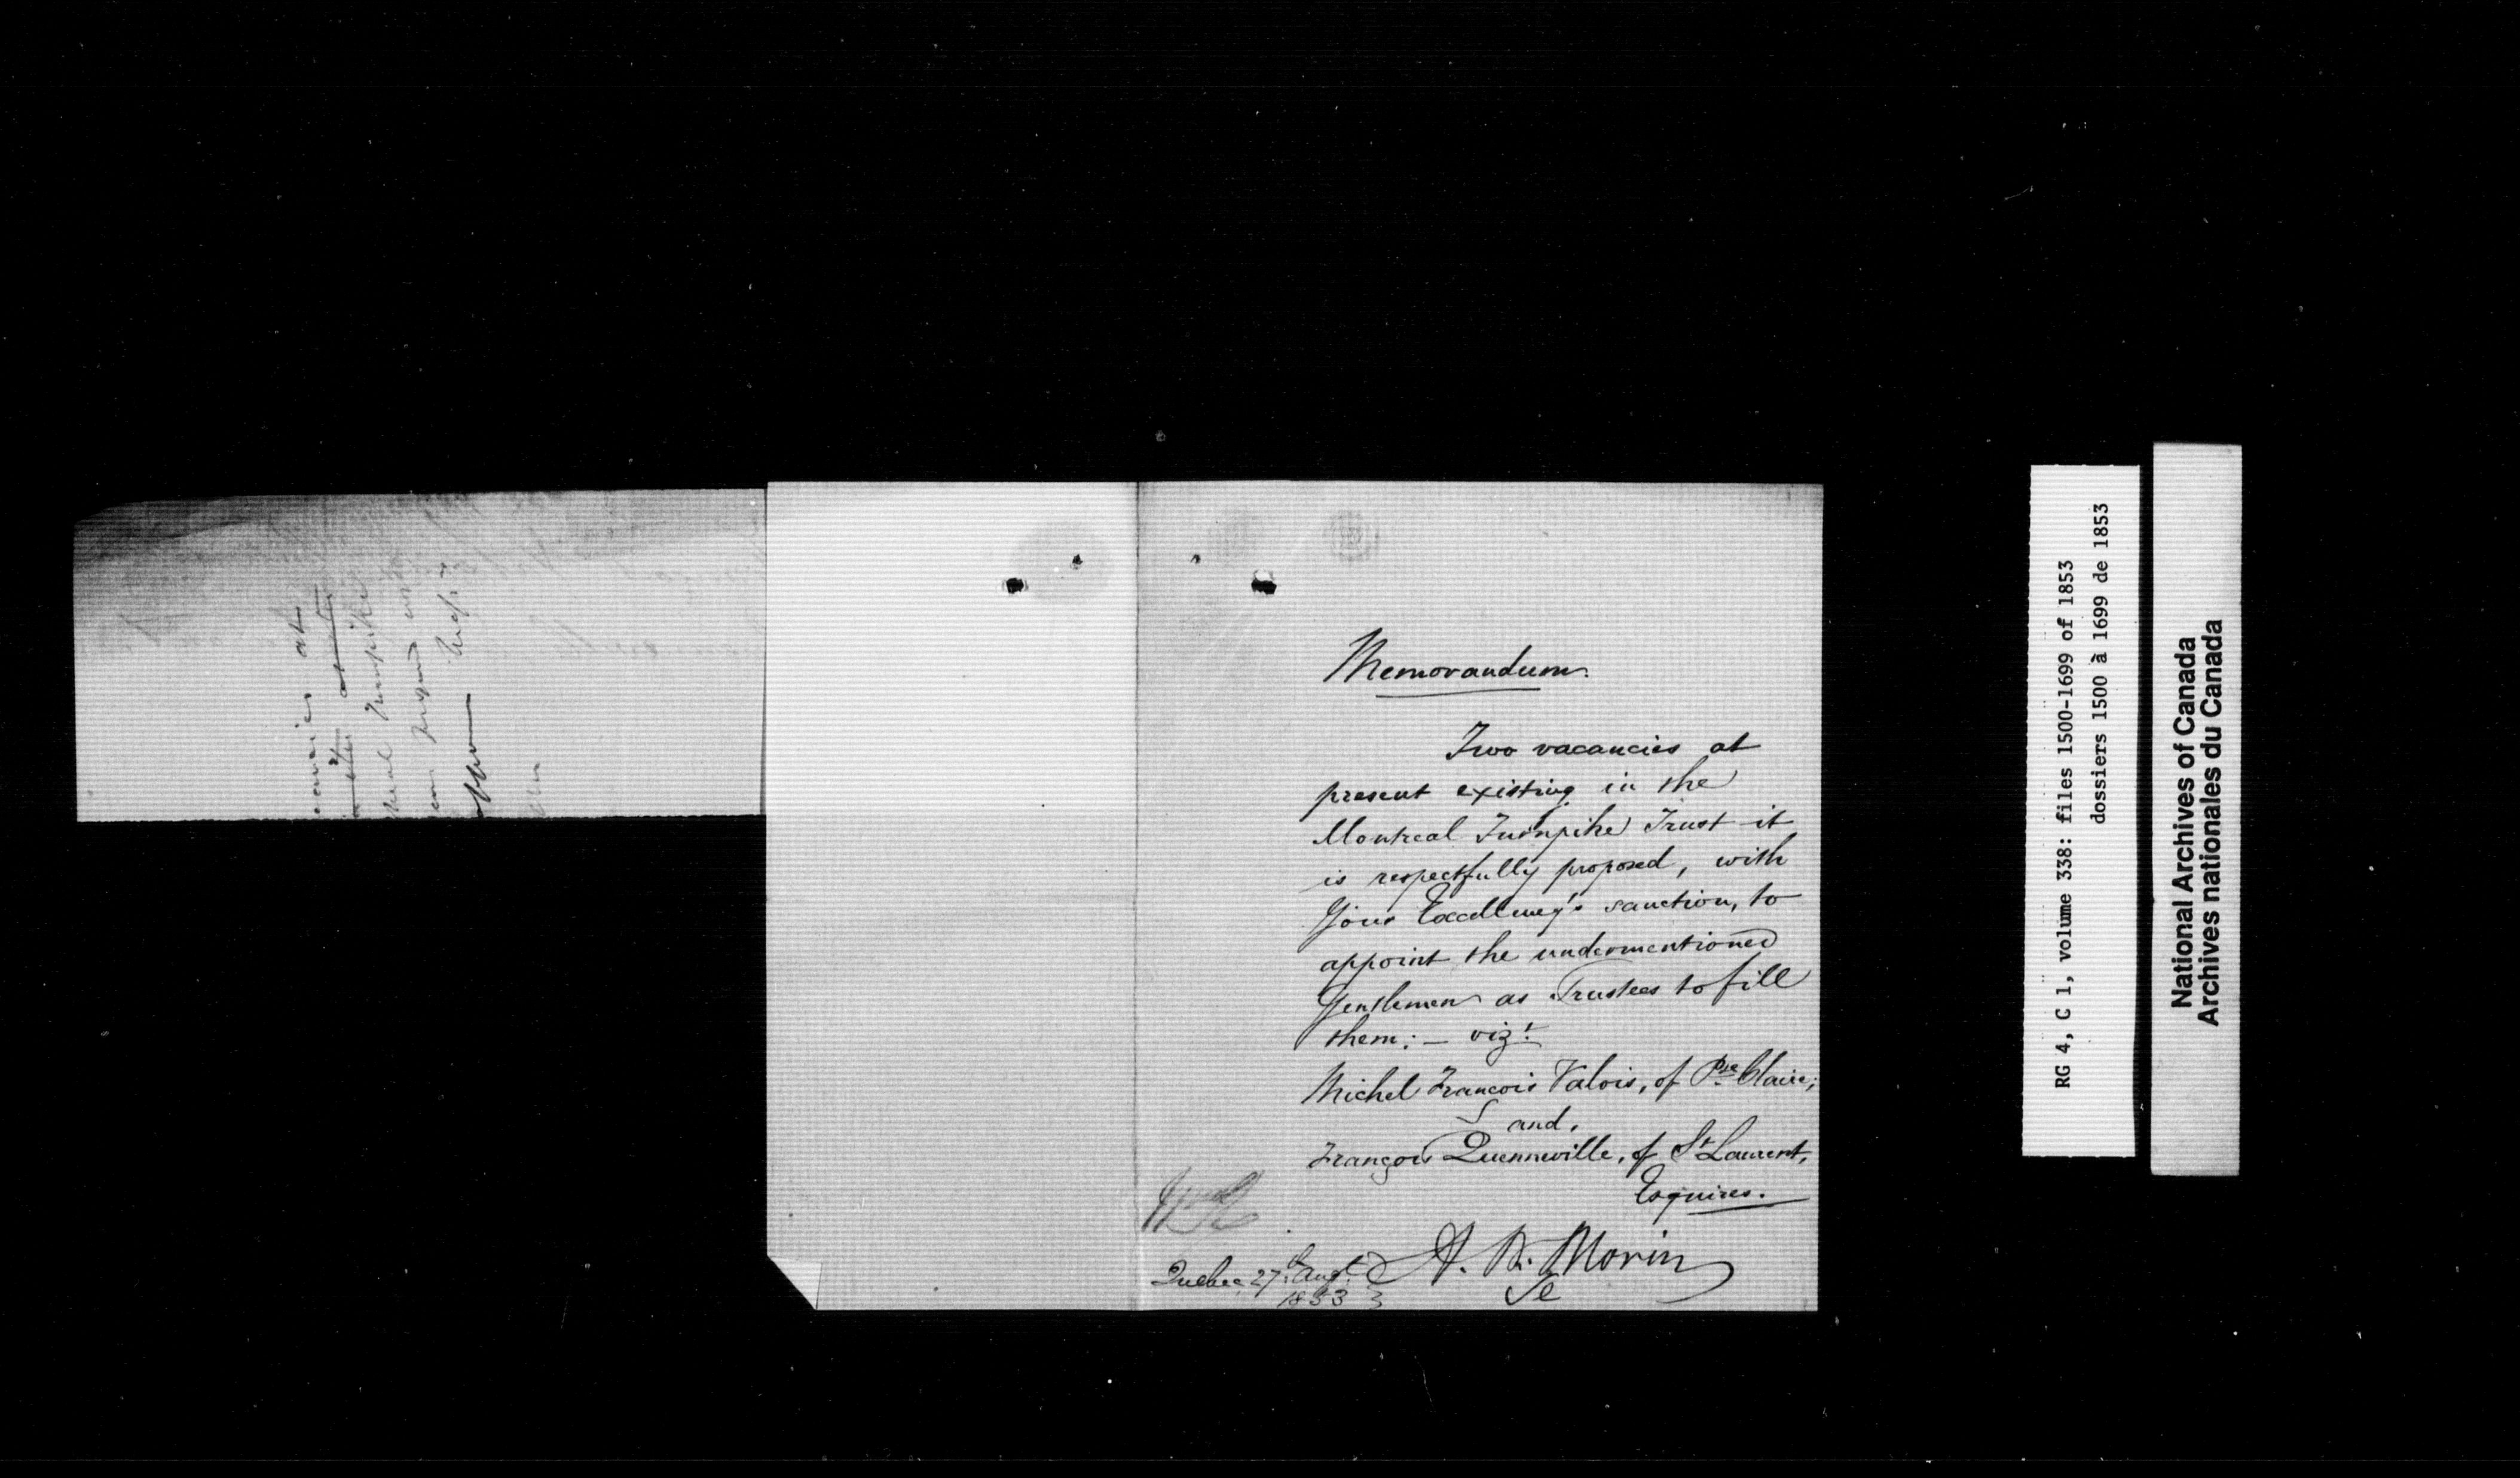 Memorandum.
Two vacancies at
present existing in the
Montreal Turnpike Trust it
is respectfully proposed, with
Your Excellency's sanction, to
appoint the undermentioned
Gentlemen as Trustees to fill
them; — vizt.
Michel Francois Valois, of Pte Claire;
and,
François Quenneville, of St Laurent,
Esquires.
A. N. Morin
Quebec, 27th Augt.
1853
at
Turnpike
RG 4, C 1, volume 338: files 1500-1699 of 1853
dossiers 1500 à 1699 de 1853
National Archives of Canada
Archives nationales du Canada